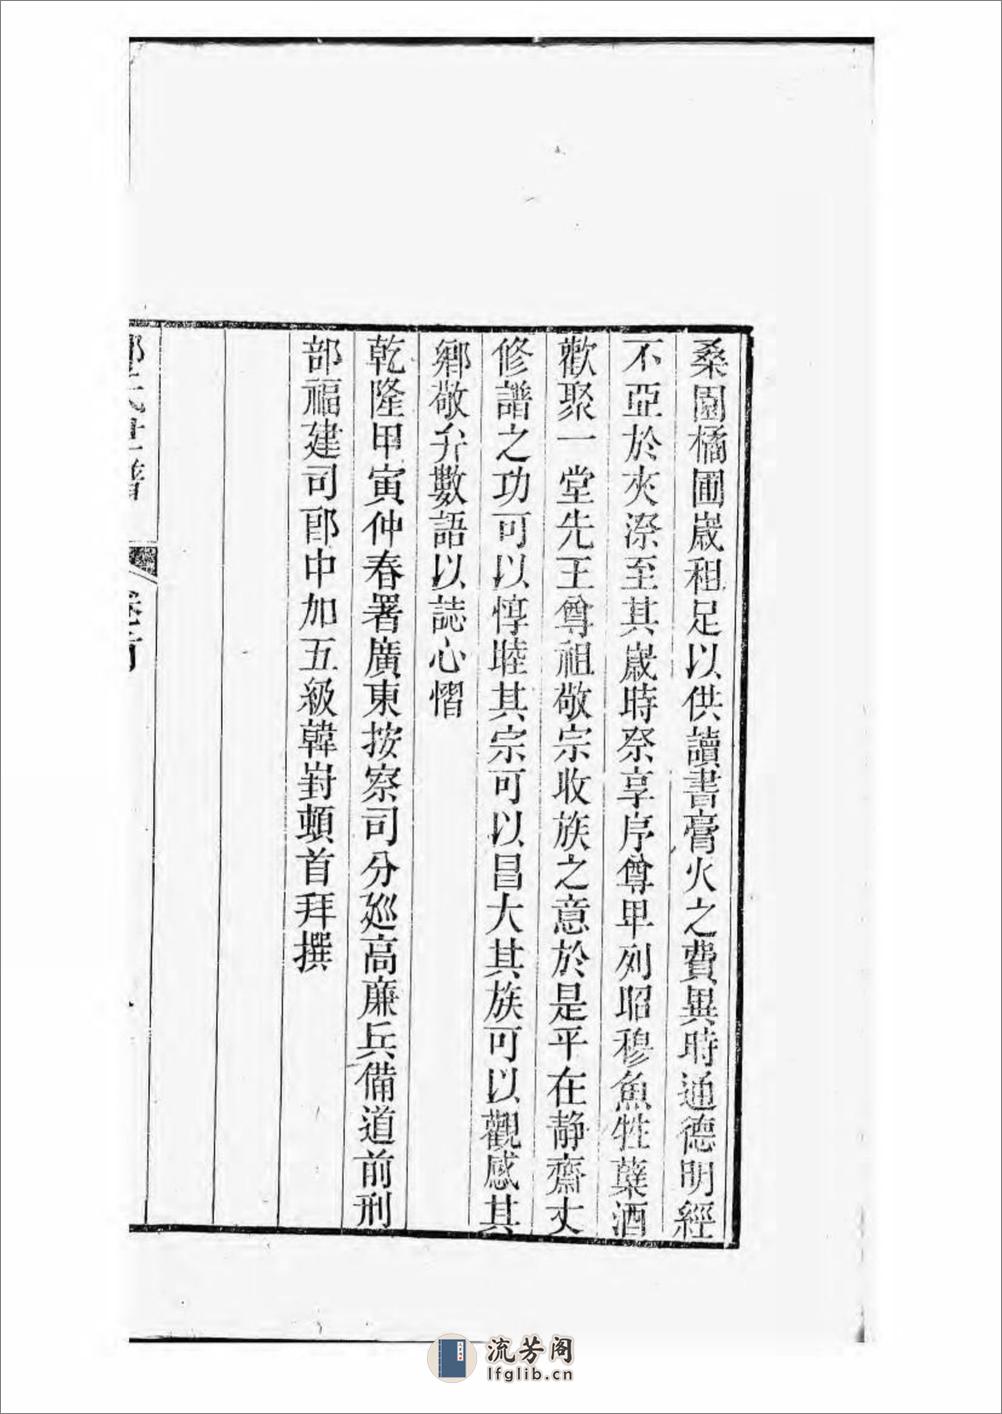 桑園橘圃嵗租足以供讀書膏火之費異時通德明經
不亞於夾漈至其嵗時祭享序尊卑列昭穆魚牲蔬酒
歡聚一堂先王尊祖敬宗收族之意於是乎在靜齋丈
修譜之功可以惇睦其宗可以昌大其族可以觀感其
鄉敬弁數語以誌心慴
乾隆甲寅仲春署廣東按察司分廵高廉兵備道前刑
部福建司郎中加五級韓崶頓首拜撰
氏世譜
卷首
流芳阁
lfglib.cn